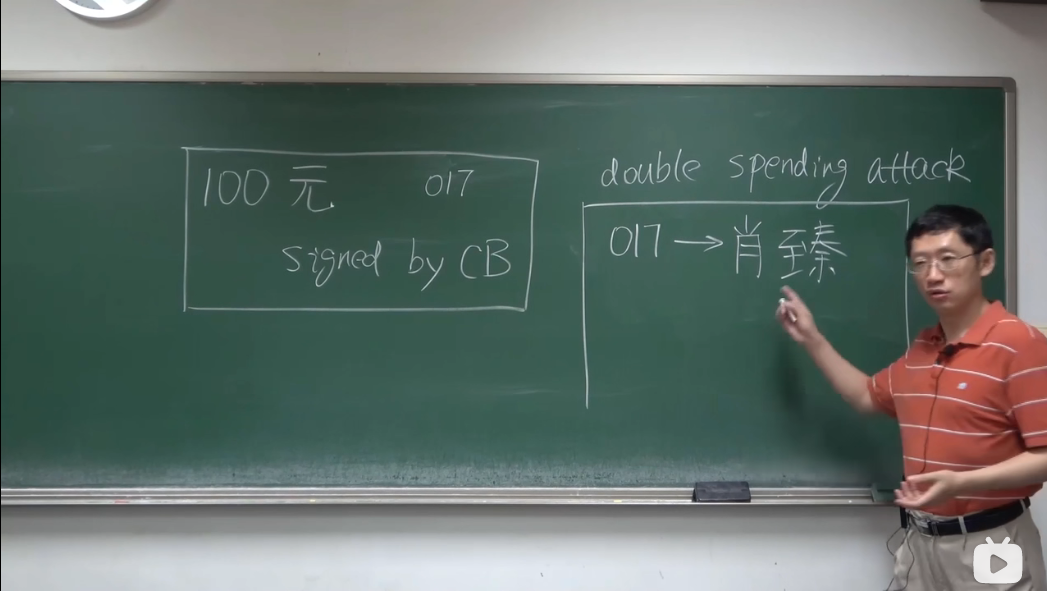 100 元 017
signed by CB
double spending attack
017 → 肖臻